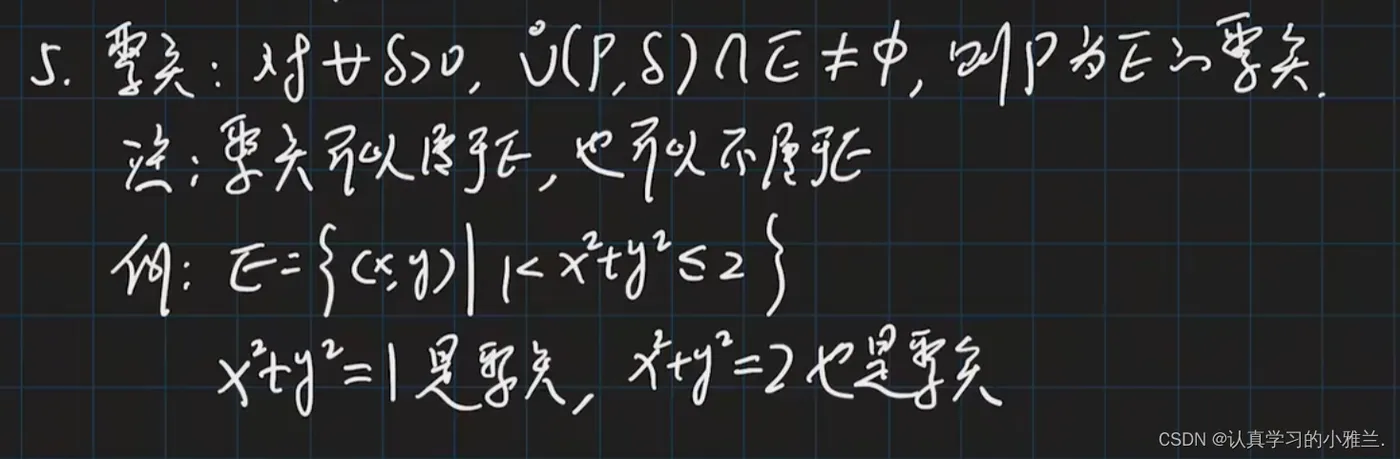 5. 聚点：对∀δ>0, Ů(P,δ)∩E≠φ, 则P为E的聚点.
注：聚点可以属于E, 也可以不属于E
例：E={(x,y)|1<x²+y²≤2}
x²+y²=1是聚点, x²+y²=2也是聚点
CSDN @认真学习的小雅兰.